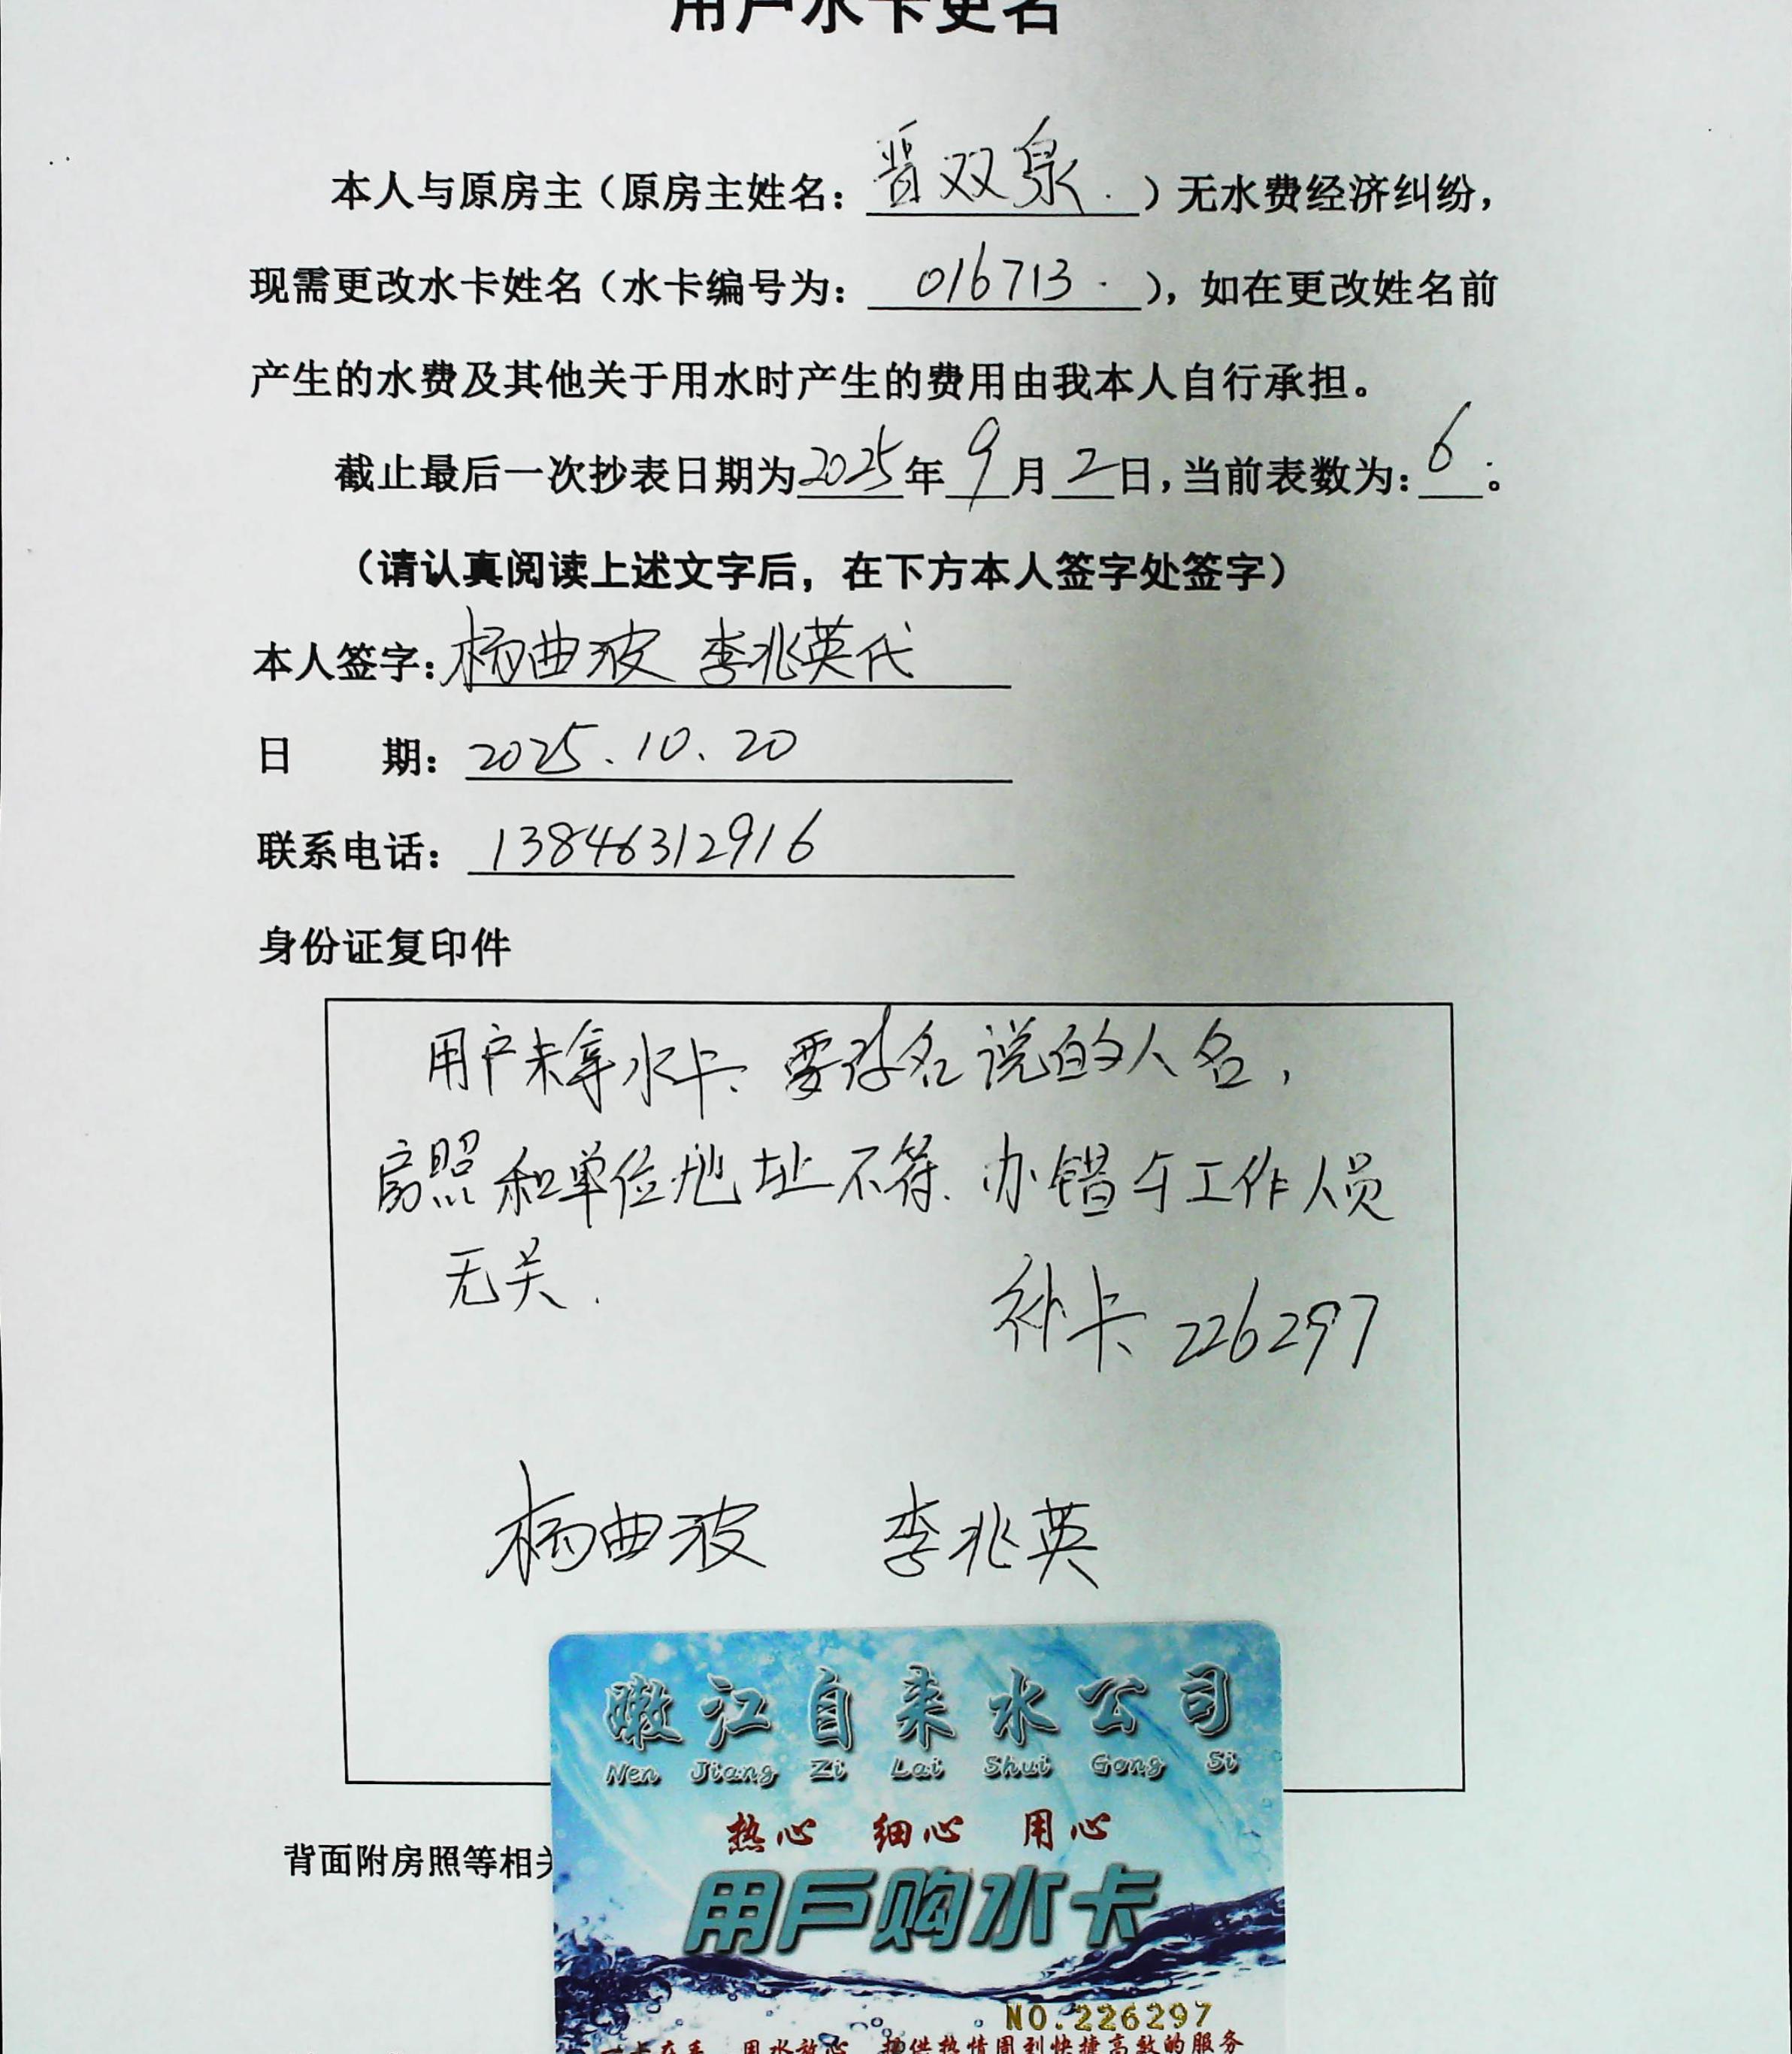 用户水卡更名
本人与原房主（原房主姓名：晋双泉.）无水费经济纠纷，
现需更改水卡姓名（水卡编号为：016713.），如在更改姓名前
产生的水费及其他关于用水时产生的费用由我本人自行承担。
截止最后一次抄表日期为2025年9月2日，当前表数为：6。
（请认真阅读上述文字后，在下方本人签字处签字）
本人签字：杨曲波 李兆英代
日 期：2025.10.20
联系电话：13846312916
身份证复印件
用户未拿水卡、要求名说的人名，
房照和单位地址不符、办错与工作人员
无关.
补卡 226297
杨曲波 李兆英
嫩江自来水公司
Nen Jiang Zi Lai Shui Gong Si
热心 细心 用心
背面附房照等相关
用户购水卡
NO.226297
一卡在手 用水放心 提供热情周到快捷高效的服务